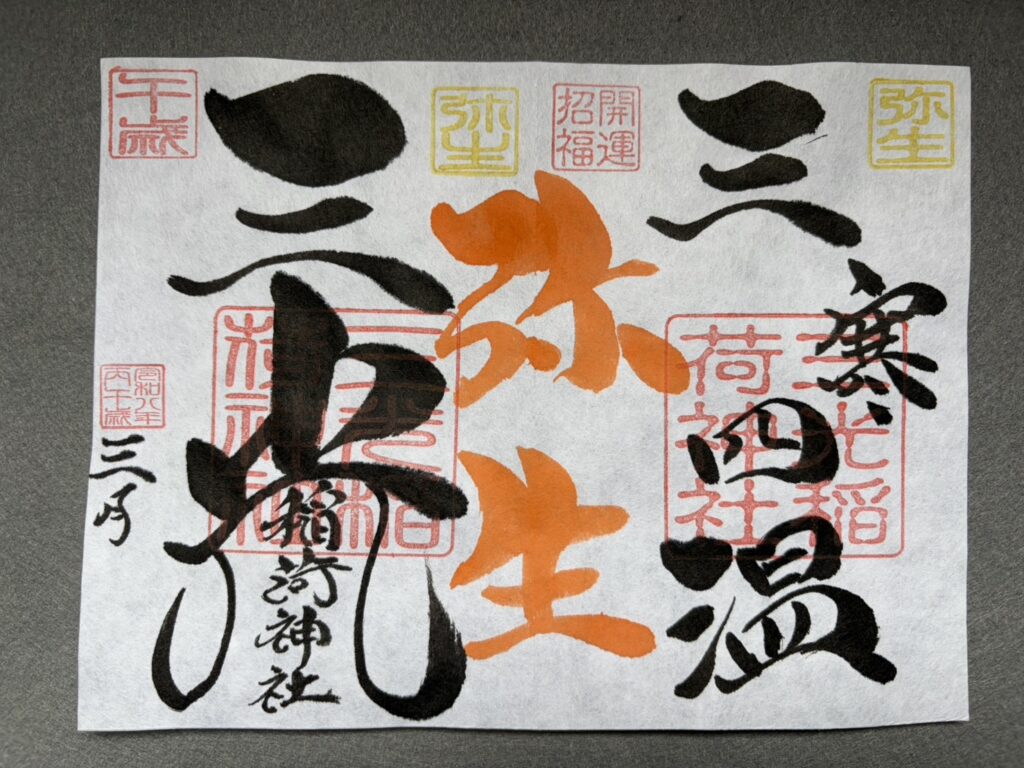 弥生
三寒四温
三光稲荷神社
開運
招福
弥生
弥生
三光
稲荷神社
三光稲荷神社
午歳
令和八年
丙午歳
三月